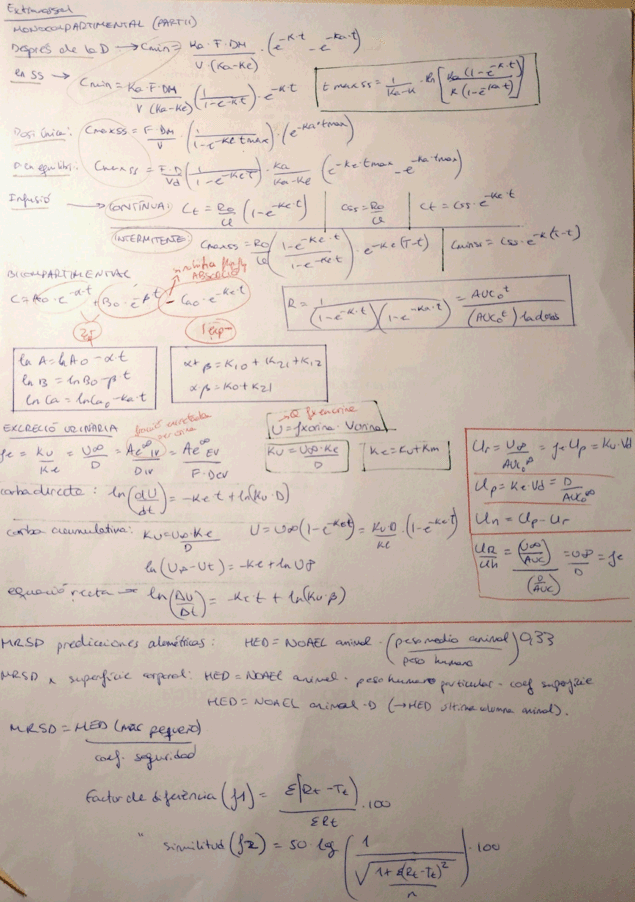 Extravasal
MONOCOMPARTIMENTAL (PART II)
Després de la D → Cmin = Ka·F·DM / V·(Ka-Ke) · (e^-K·t - e^-Ka·t)
en SS → Cmin = Ka·F·DM / V(Ka-Ke) (1 / 1-e^-K·t) · e^-K·t
t max ss = 1 / Ka-K · ln [Ka(1-e^-K·t) / K(1-e^-Ka·t)]
Dosi única: Cmaxss = F·DM / V (1 / 1-e^-Ke tmax) · (e^-Ka·tmax)
Cmaxss = F·D / Vd (1 / 1-e^-Ke t) · Ka / Ka-Ke (e^-Ke·tmax - e^-Ka·tmax)
Infusió → CONTÍNUA: Ct = R0 / Cl (1-e^-Ke t) | Css = R0 / Cl | Ct = Css·e^-Ke·t
INTERMITENTE: Cmaxss = R0 / Cl (1-e^-Ke·t / 1-e^-Ke t) · e^-Ke(T-t) | Cminss = Css·e^-K(T-t)
BICOMPARTIMENTAL
ABSORCIÓ
C = A0·e^-α·t + B0·e^-β·t - Ca0·e^-Ka t
R = 1 / (1-e^-K·t)(1-e^-Ka·t) = AUC0^t / (AUC0^t) 1a dosis
ln A = ln A0 - α·t
ln B = ln B0 - β·t
ln Ca = ln Ca0 - Ka·t
α+β = K10 + K21 + K12
α·β = K0 + K21
EXCRECIÓ URINÀRIA
fe = Ku / Ke = U∞ / D = Ae∞ IV / D iv = Ae∞ EV / F·Dev
U = fxorina · Vorina
Ku = U∞·Ke / D
Ke = Ku + Km
corba directa: ln(dU / dt) = -Ke t + ln(Ku·D)
corba acumulativa: Ku = U∞·Ke / D U = U∞(1-e^-Ke t) = Ku·D / Ke · (1-e^-Ke t)
ln(U∞-Ut) = -Ke + ln U∞
equació recta → ln(ΔU / Δt) = -Ke t + ln(Ku·β)
Ur = U∞ / AUC0^∞ = fe Up = Ku·Vd
Up = Ke·Vd = D / AUC0^∞
Un = Up - Ur
(U∞ / AUC) / (D / AUC) = U∞ / D = fe
MRSD prediccions alomètricas: HED = NOAEL animal · (peso medio animal / peso humano) 0,33
MRSD x superfície corporal: HED = NOAEL animal · peso humano particular · coef superficie
HED = NOAEL animal · D (→ HED ultima columna animal).
MRSD = HED (más pequeño) / coef. seguridad
Factor de diferència (f1) = Σ|Rt - Tt| / ΣRt · 100
" similitud (f2) = 50 · log (1 / √1+Σ(Rt-Tt)² / n) · 100